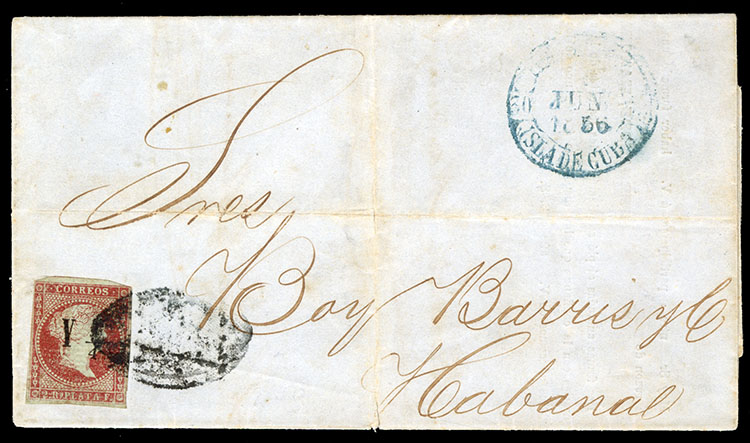 JUN
1856
ISLA DE CUBA
Sres
Boy Barris y C
Habana
CORREOS
Y
2 R. PLATA F.